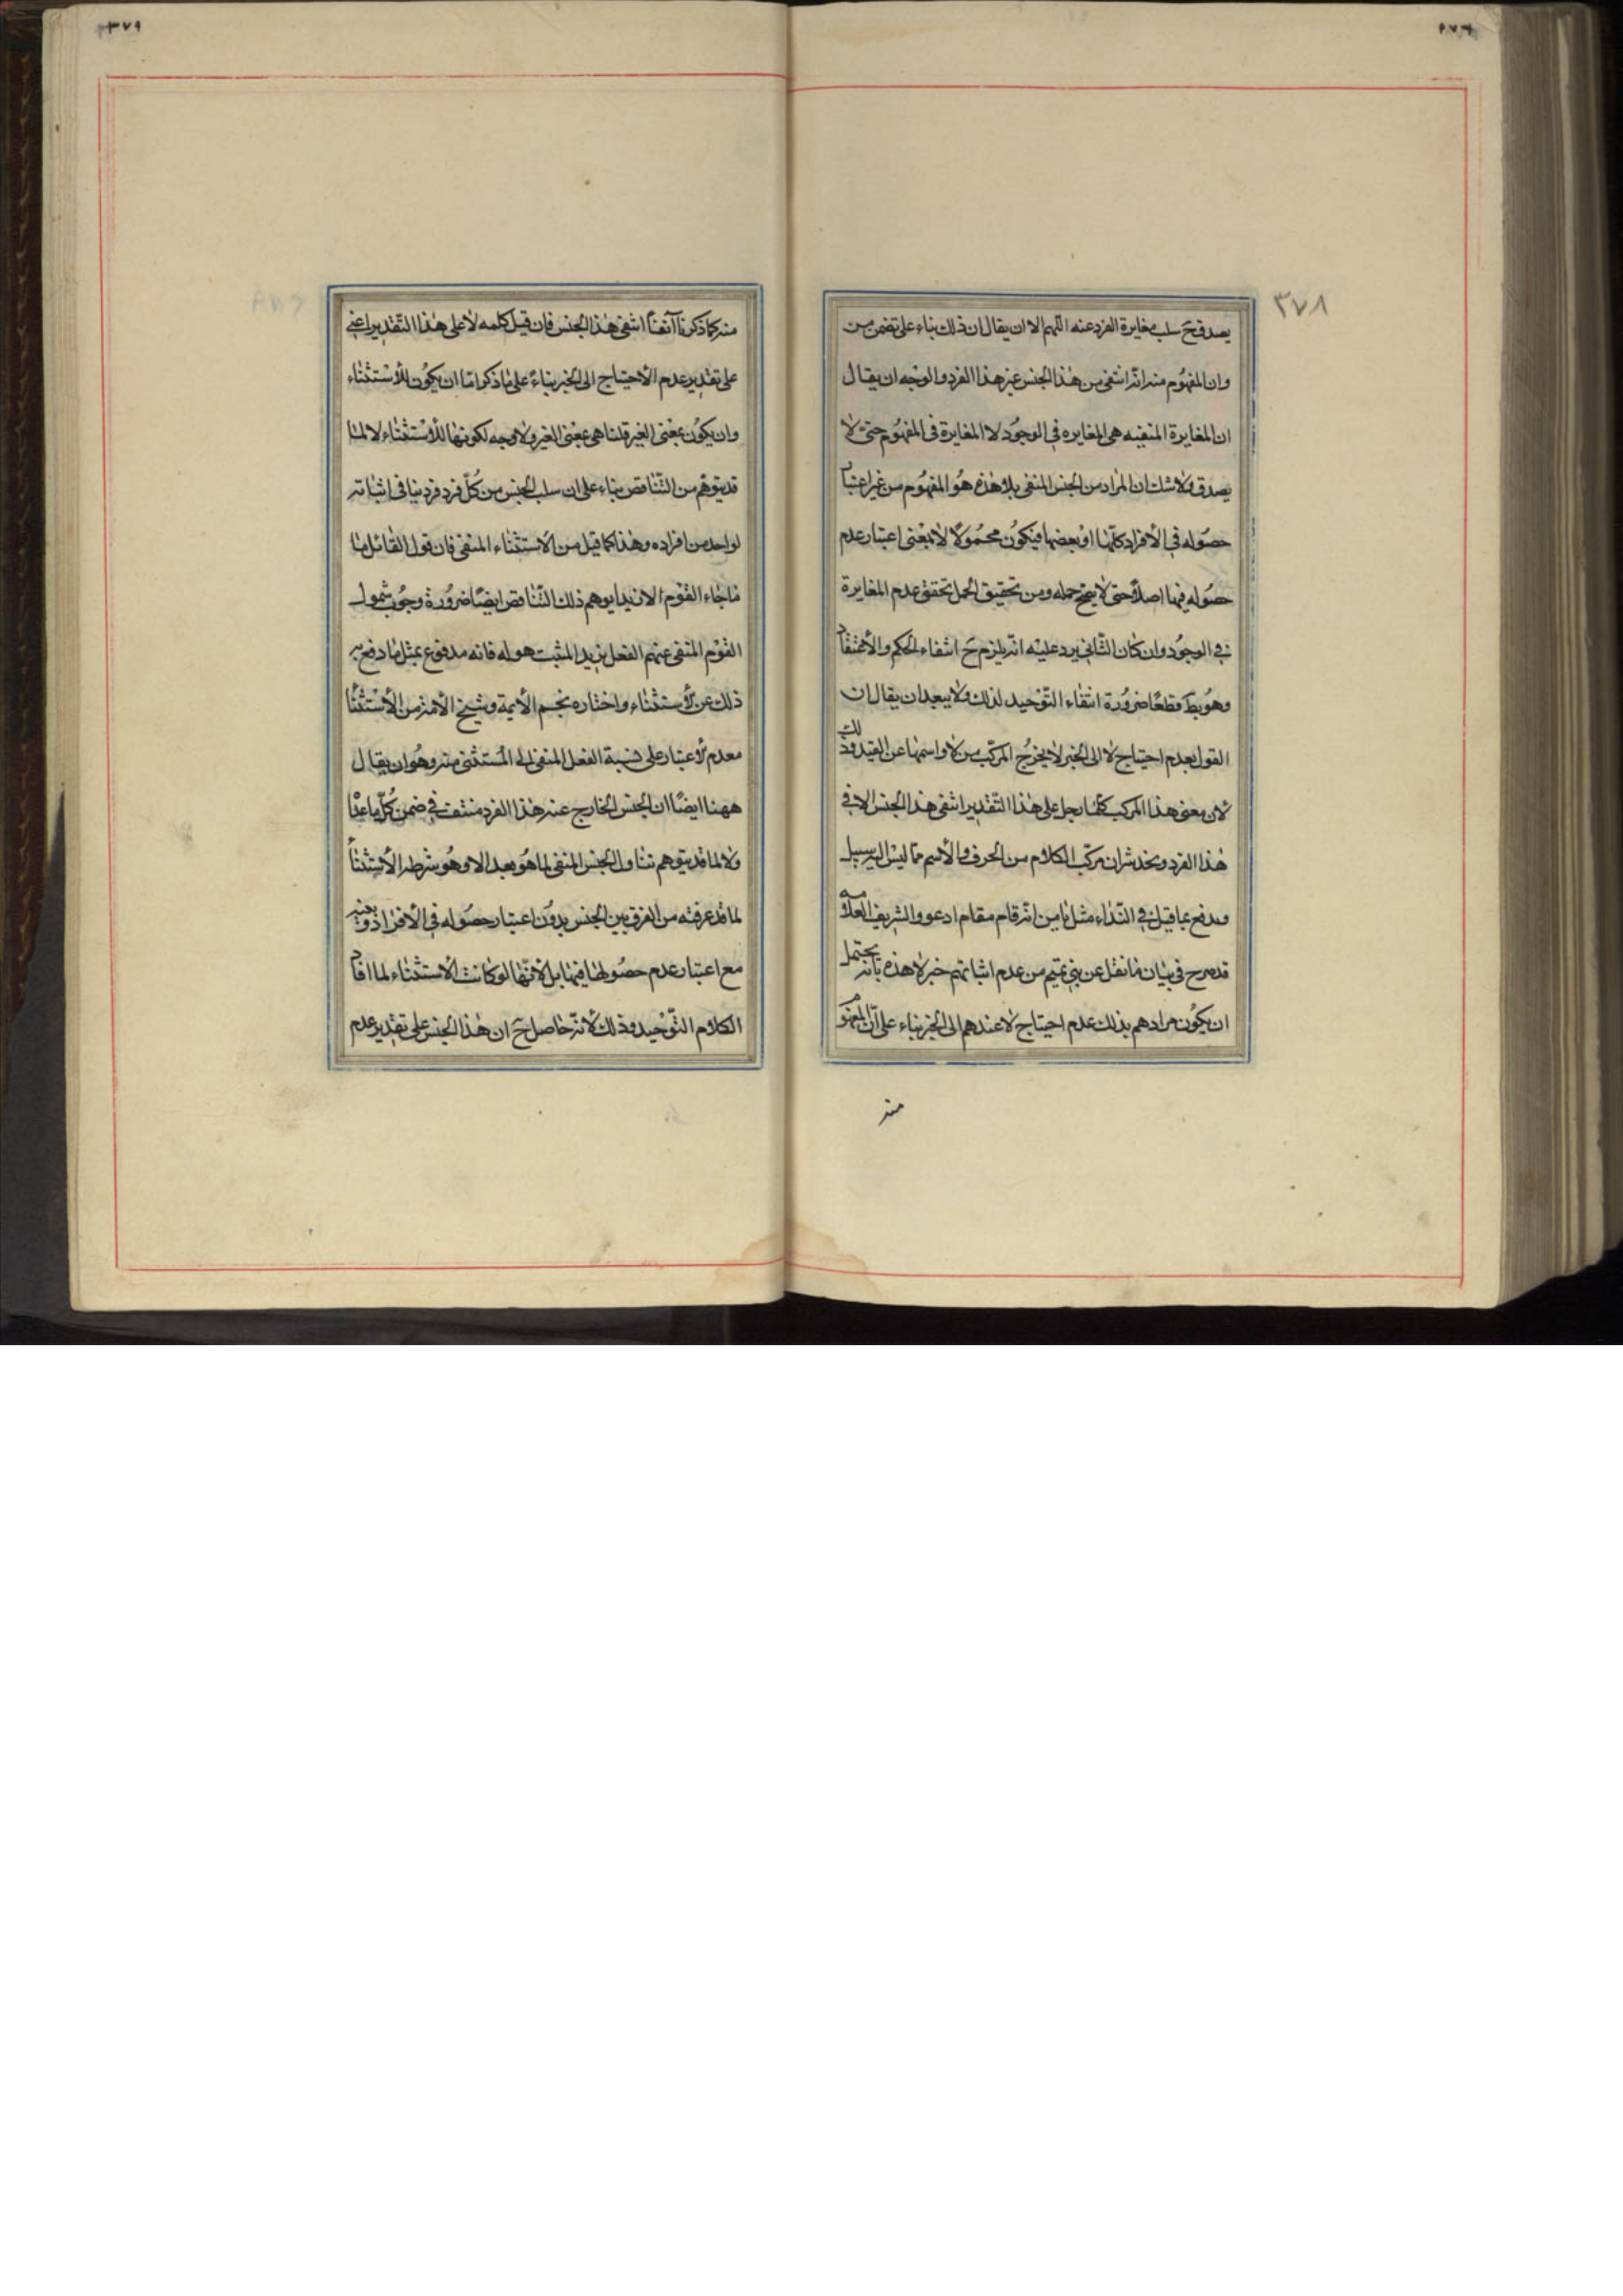 ٣٧٨
يصدق ح سلب مغايرة الفرد عنه اللهم الا ان يقال ان ذلك بناء على تضمن من
وان المفهوم منه انه انتفى من هذا الجنس غير هذا الفرد والوجه ان يقال
ان المغايرة المنفيه هى المغايره في الوجود لا المغايرة في المفهوم حتى لا
يصدق ولا شك ان المراد من الجنس المنفى بلا هذه هو المفهوم من غير اعتبار
حصوله في الأفراد كلها او بعضها فيكون محمولا لا بمعنى اعتبار عدم
حصوله فيها اصلا حتى لا يصح حمله ومن تحقيق الحمل تحقق عدم المغايرة
في الوجود وان كان الثاني يرد عليه انه يلزم ح انتفاء الحكم والاعتقاد
وهو بط قطعا ضرورة انتفاء التوحيد لذلك ولا يبعد ان يقال ان
القول بعدم احتياج لا الى الخبر لا يخرج المركب من لا واسمها عن القيد وذلك
لان معنى هذا المركب كلما رجل على هذا التقدير انتفى هذا الجنس الا في
هذا الفرد ويخدشه ان مركب الكلام من الحرف والاسم مما ليس اليه سبيل
ويدفع بما قيل في النداء مثل يا من انه قام مقام ادعو والشريف العلامه
قد صرح في بيان ما نقل عن بني تميم من عدم اثباتهم خبر لا هذه بانه يحتمل
ان يكون مرادهم بذلك عدم احتياج لا عندهم الى الخبر بناء على ان المفهوم
منه
٣٧٩
منه كما ذكرنا آنفا انتفى هذا الجنس فان قيل كلمه لا على هذا التقدير اعني
على تقدير عدم الاحتياج الى الخبر بناء على ما ذكر اما ان يكون للاستثناء
وان يكون بمعنى الغير قلنا هى بمعنى الغير ولا وجه لكونها للاستثناء لا لما
قد يتوهم من التناقض بناء على ان سلب الجنس من كل فرد فرد ينافى اثباته
لواحد من افراده وهذا كما قيل من الاستثناء المنفى فان قول القائل ما
ما جاء القوم الا زيدا يوهم ذلك التناقض ايضا ضرورة وجوب شمول
القوم المنفى عنهم الفعل بزيد المثبت هو له فانه مدفوع بمثل ما دفع به
ذلك عن الاستثناء واختاره نجم الأيمة وشيخ الأمة من الاستثناء
معدم الاعتبار على نسبة الفعل المنفى الى المستثنى منه وهو ان يقال
ههنا ايضا ان الجنس الخارج عنه هذا الفرد منتف في ضمن كل ما عدا
ولا لما قد يتوهم تناول الجنس المنفى لما هو بعد الا وهو شرط الاستثناء
لما قد عرفته من الفرق بين الجنس بدون اعتبار حصوله في الأفراد وبينه
مع اعتبار عدم حصوله لها فيها بل لانها لو كانت الاستثناء لما افاد
الكلام التوحيد وذلك لانه حاصل ح ان هذا الجنس على تقدير عدم